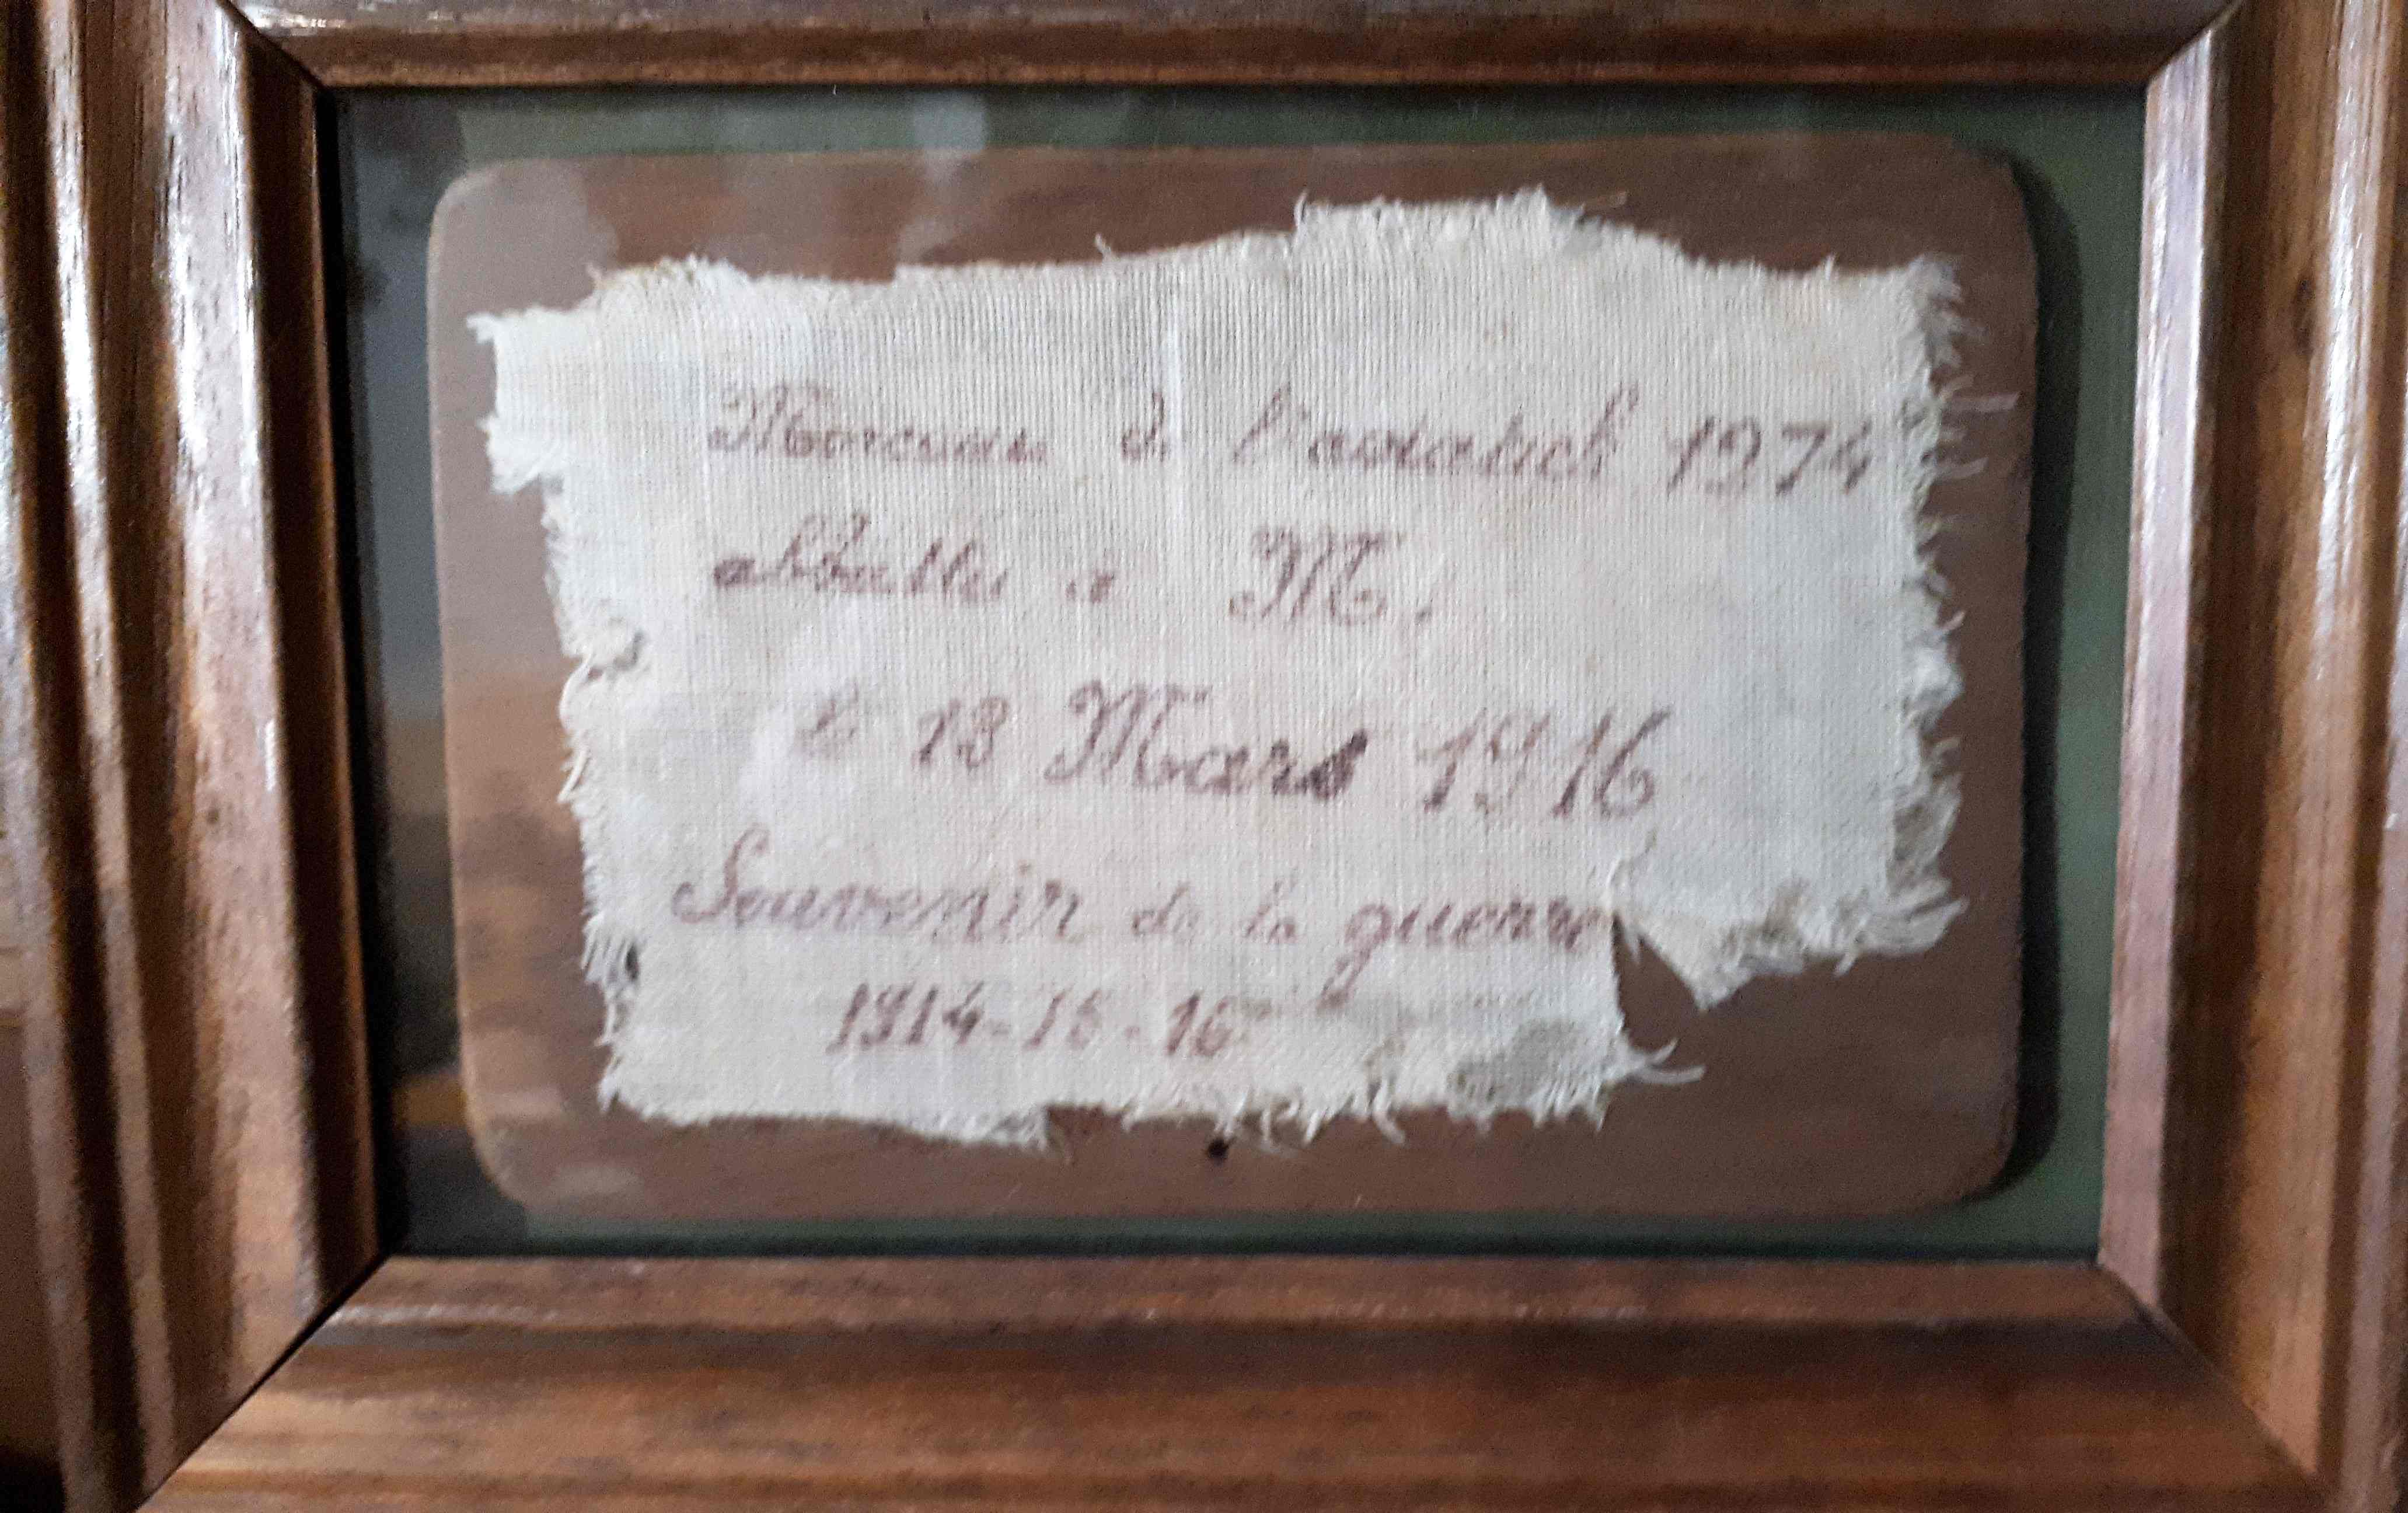 Morceau de l'aviatick 1974
abattu à M.
le 13 Mars 1916
Souvenir de la guerre
1914-15-16